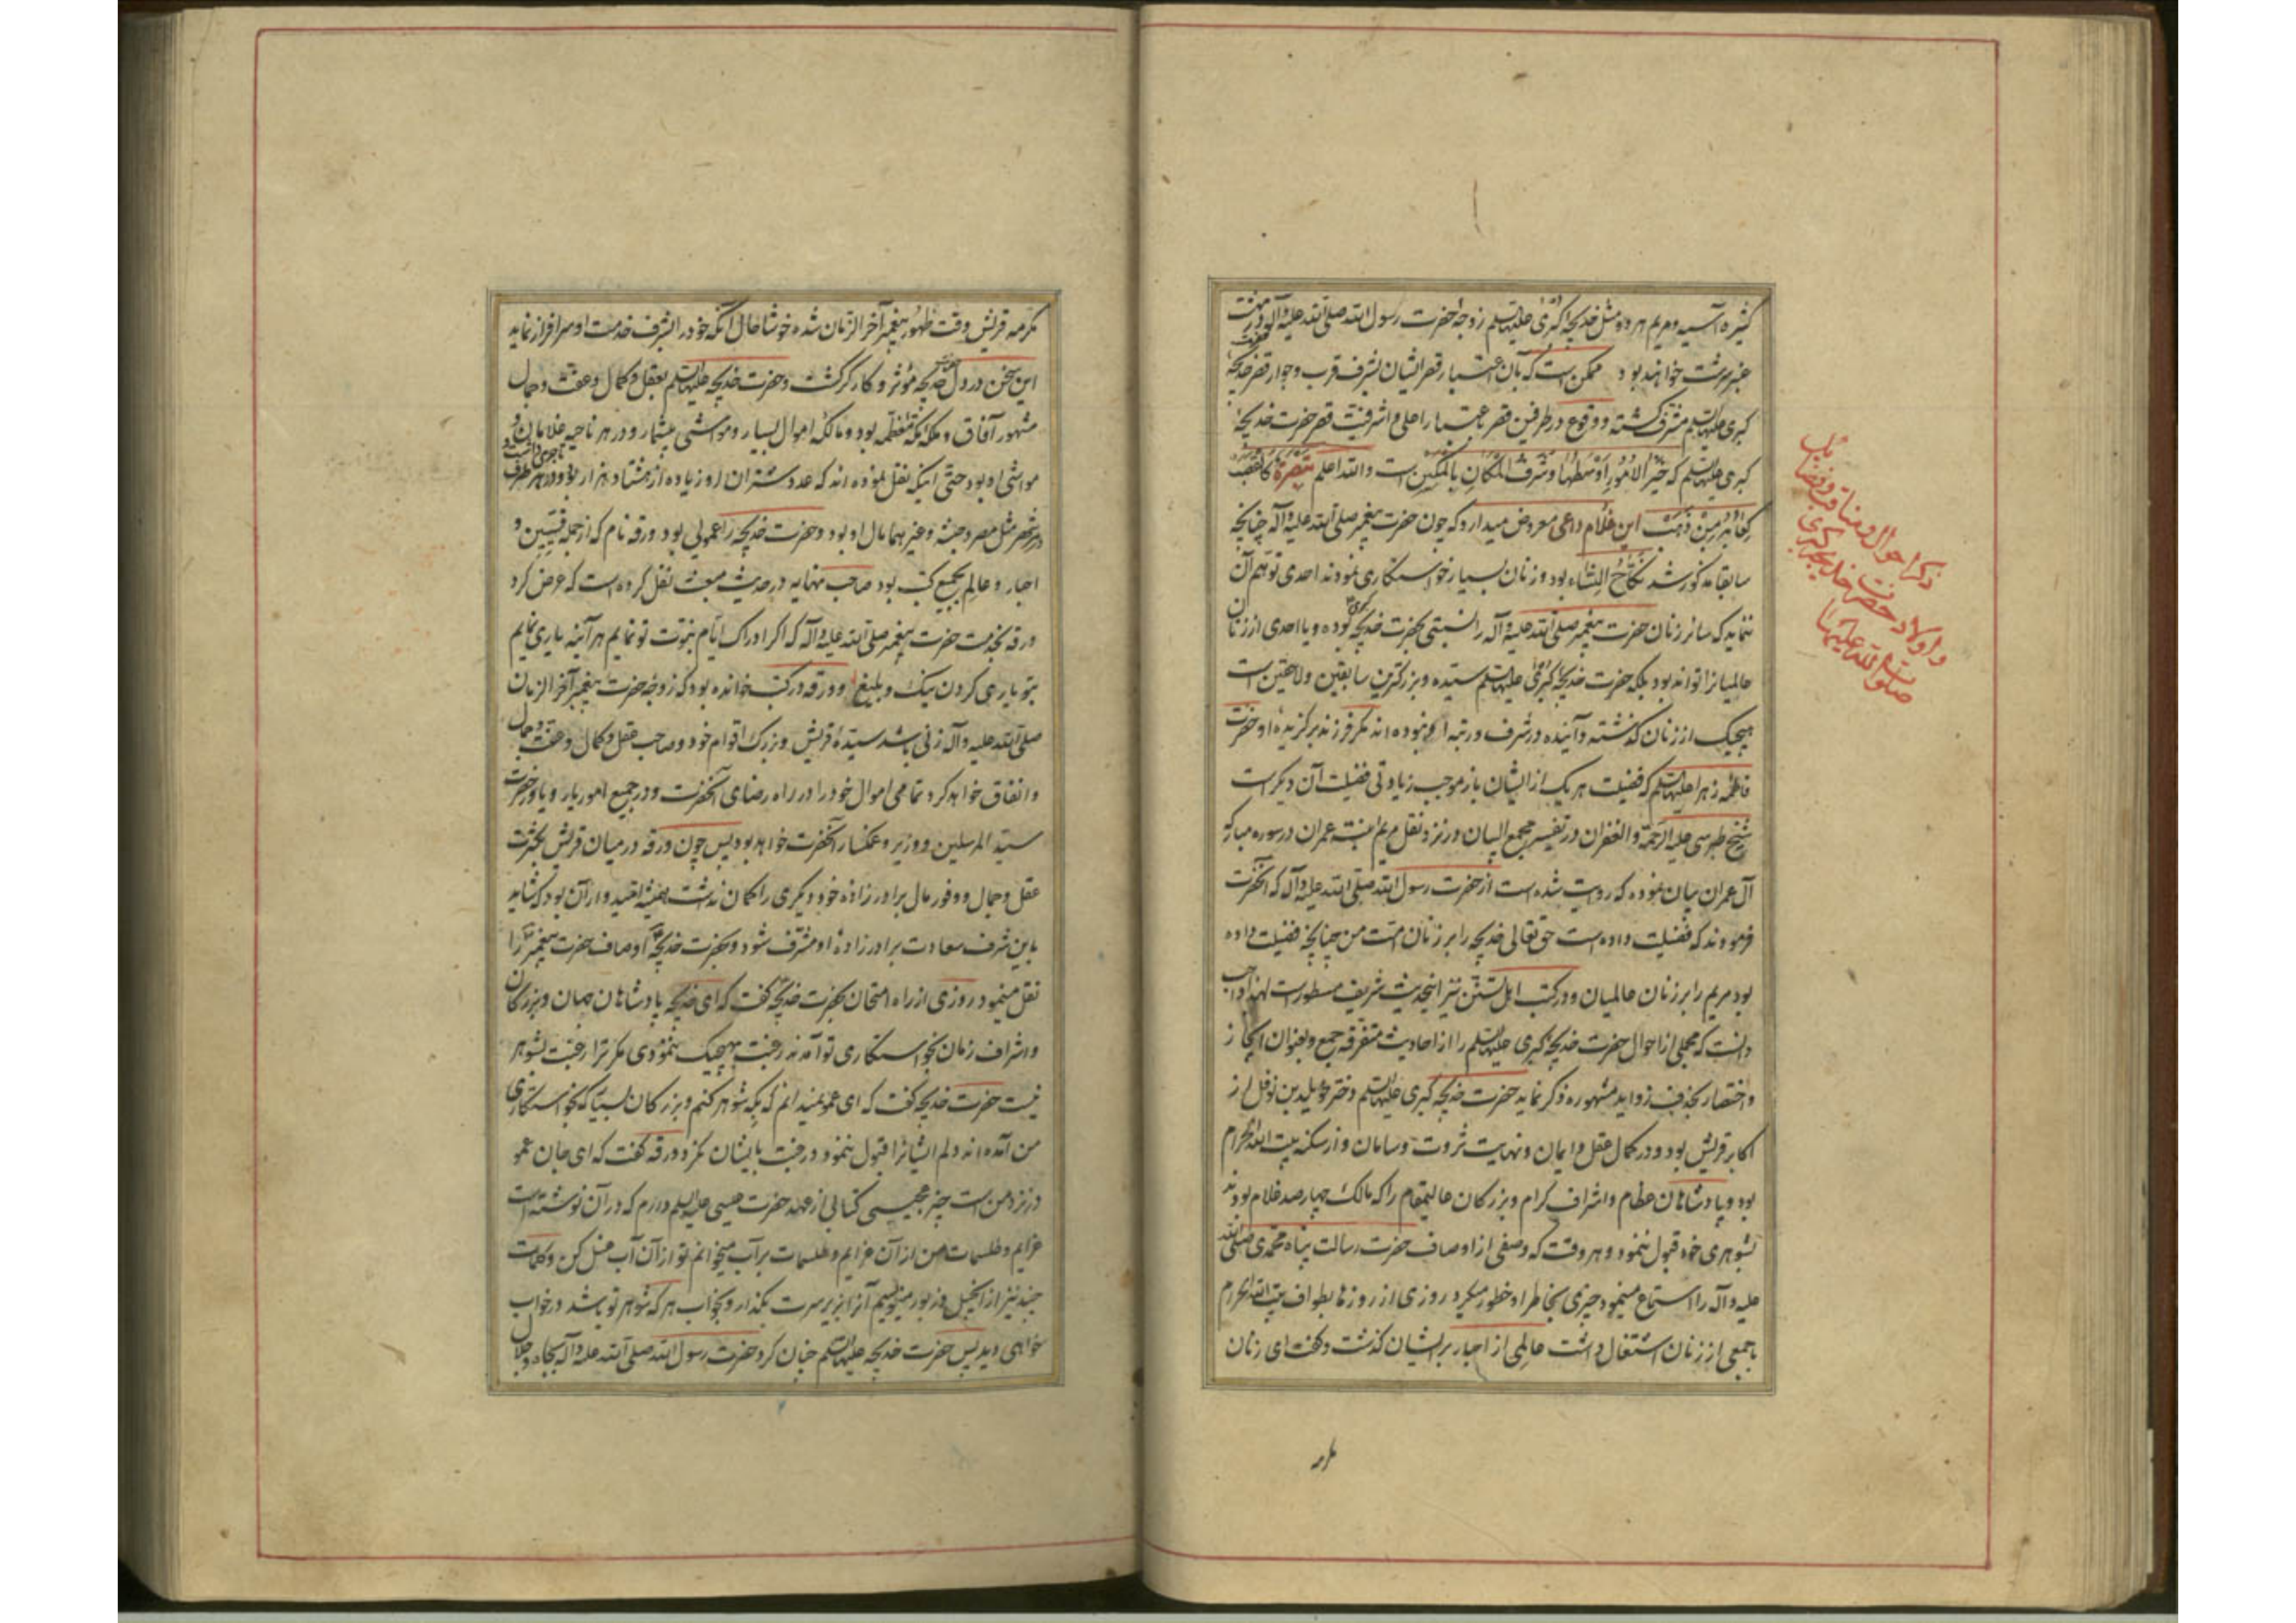 کثیره آسیه و مریم هر دو مثل خدیجه کبری علیها السلم زوجه حضرت رسول الله صلی الله علیه و آله در بهشت
عنبر سرشت خواهند بود ممکن است که بآن اعتبار قصر ایشان بشرف قرب و جوار قصر حضرت خدیجه
کبری علیها السلم مشرف گشته و وقوع در طرفین قصر باعتبار اعلی و اشرفیت قصر حضرت خدیجهٔ
کبری علیها السلم که خیر الامور اوسطها و شرف المکان بالمکین است والله اعلم تبصرة
این غلام داعی معروض میدارد که چون حضرت پیغمبر صلی الله علیه و آله چنانچه
سابقا مذکور شد نکاح النساء بود و زنان بسیار خواستکاری نمودند احدی توهم آن
ننماید که سائر زنان حضرت پیغمبر صلی الله علیه و آله را نسبتی بحضرت خدیجه کبری بوده و یا احدی از زنان
عالمیانرا تواند بود بلکه حضرت خدیجه کبری علیها السلم سیده و بزرکترین سابقین و لاحقین است
هیچیک از زنان گذشته و آینده در شرف و رتبه او نبوده اند مگر فرزند برگزیدهٔ او حضرت
فاطمه زهرا علیها السلم که فضیلت هر یک از ایشان باز موجب زیادتی فضیلت آن دیگر است
شیخ طبرسی علیه الرحمة و الغفران در تفسیر مجمع البیان در نزد نقل مریم ابنة عمران در سوره مبارکه
آل عمران بیان نموده که روایت شده است از حضرت رسول الله صلی الله علیه و آله که آنحضرت
فرمودند که فضیلت داده است حق تعالی خدیجه را بر زنان امت من چنانچه فضیلت داده
بود مریم را بر زنان عالمیان و در کتب اهل تسنن نیز اینحدیث شریف مسطور است لهذا واجب
دانست که مجملی از احوال حضرت خدیجه کبری علیها السلم را از احادیث متفرقه جمع و بعنوان ایجاز
و اختصار بحذف زواید مشهوره ذکر نماید حضرت خدیجه کبری علیها السلم دختر خویلد بن نوفل از
اکابر قریش بود و در کمال عقل و ایمان و نهایت ثروت و سامان و از سکنه بیت الله الحرام
بود و پادشاهان عظام و اشراف کرام و بزرکان عالیمقام را که مالک چهار صد غلام بودند
بشوهری خود قبول ننمود و هر وقت که وصفی از اوصاف حضرت رسالت پناه محمدی صلی الله
علیه و آله را استماع مینمود چیزی بخاطر او خطور میکرد روزی از روزها بطواف بیت الله الحرام
با جمعی از زنان اشتغال داشت عالمی از احبار بر ایشان گذشت و گفت ای زنان
ذکر احوال و مناقب و فضایل
و اولاد حضرت خدیجه کبری
صلوات الله علیها
مکرمه
مکرمه قریش وقت ظهور پیغمبر آخر الزمان شده خوشا حال آنکه خود را بشرف خدمت او سرافراز نماید
این سخن در دل خدیجه مؤثر و کارگر گشت و حضرت خدیجه علیها السلم بعقل و کمال و عفت و جمال
مشهور آفاق و ملکه مکه معظمه بود و مالکه اموال بسیار و مواشی بیشمار و در هر ناحیه غلامان و
مواشی او بود حتی اینکه نقل نموده اند که عدد شتران او زیاده از هشتاد هزار بود و در هر طرف تاجری داشت و
در هر شهر مثل مصر و حبشه و غیرهما مال او بود و حضرت خدیجه را عموئی بود ورقه نام که از جمله قسیسین و
احبار و عالم بجمیع کتب بود صاحب نهایه در حدیث مبعث نقل کرده است که عرض کرد
ورقه بخدمت حضرت پیغمبر صلی الله علیه و آله که اگر ادراک ایام نبوت تو نمایم هر آینه یاری نمایم
بتو یاری کردن نیک و بلیغ و ورقه در کتب خوانده بود که زوجه حضرت پیغمبر آخر الزمان
صلی الله علیه و آله زنی باشد سیدهٔ قریش و بزرک اقوام خود و صاحب عقل و کمال و عفت و جمال
و انفاق خواهد کرد تمامی اموال خود را در راه رضای آنحضرت و در جمیع امور یار و یاور حضرت
سید المرسلین و وزیر و غمگسار آنحضرت خواهد بود پس چون ورقه در میان قریش بکثرت
عقل و جمال و وفور مال برادر زاده خود دیگری را گمان نداشت همیشه امیدوار آن بود که شاید
باین شرف سعادت برادر زادهٔ او مشرف شود و بحضرت خدیجه اوصاف حضرت پیغمبر را
نقل مینمود روزی از راه امتحان بحضرت خدیجه گفت که ای خدیجه پادشاهان جهان و بزرکان
و اشراف زمان بخواستکاری تو آمدند رغبت بهیچیک ننمودی مگر ترا رغبت بشوهر
نیست حضرت خدیجه گفت که ای عم نمیدانم که بکه شوهر کنم و بزرکان بسیار که بخواستکاری
من آمده اند دلم ایشانرا قبول ننمود و رغبت بایشان نکرد ورقه گفت که ای جان عم
در نزد من است چیز عجیبی کتابی از عهد حضرت عیسی علیه السلم دارم که در آن نوشته است
عزایم و طلسمات من از آن عزایم و طلسمات بر آب میخوانم تو از آن آب غسل کن و کلمات
چند نیز از انجیل و زبور مینویسم آنرا بزیر سرت بگذار و بخواب هر که شوهر تو باشد در خواب
خواهی دید پس حضرت خدیجه علیها السلم چنان کرد حضرت رسول الله صلی الله علیه و آله بجاه و جلال